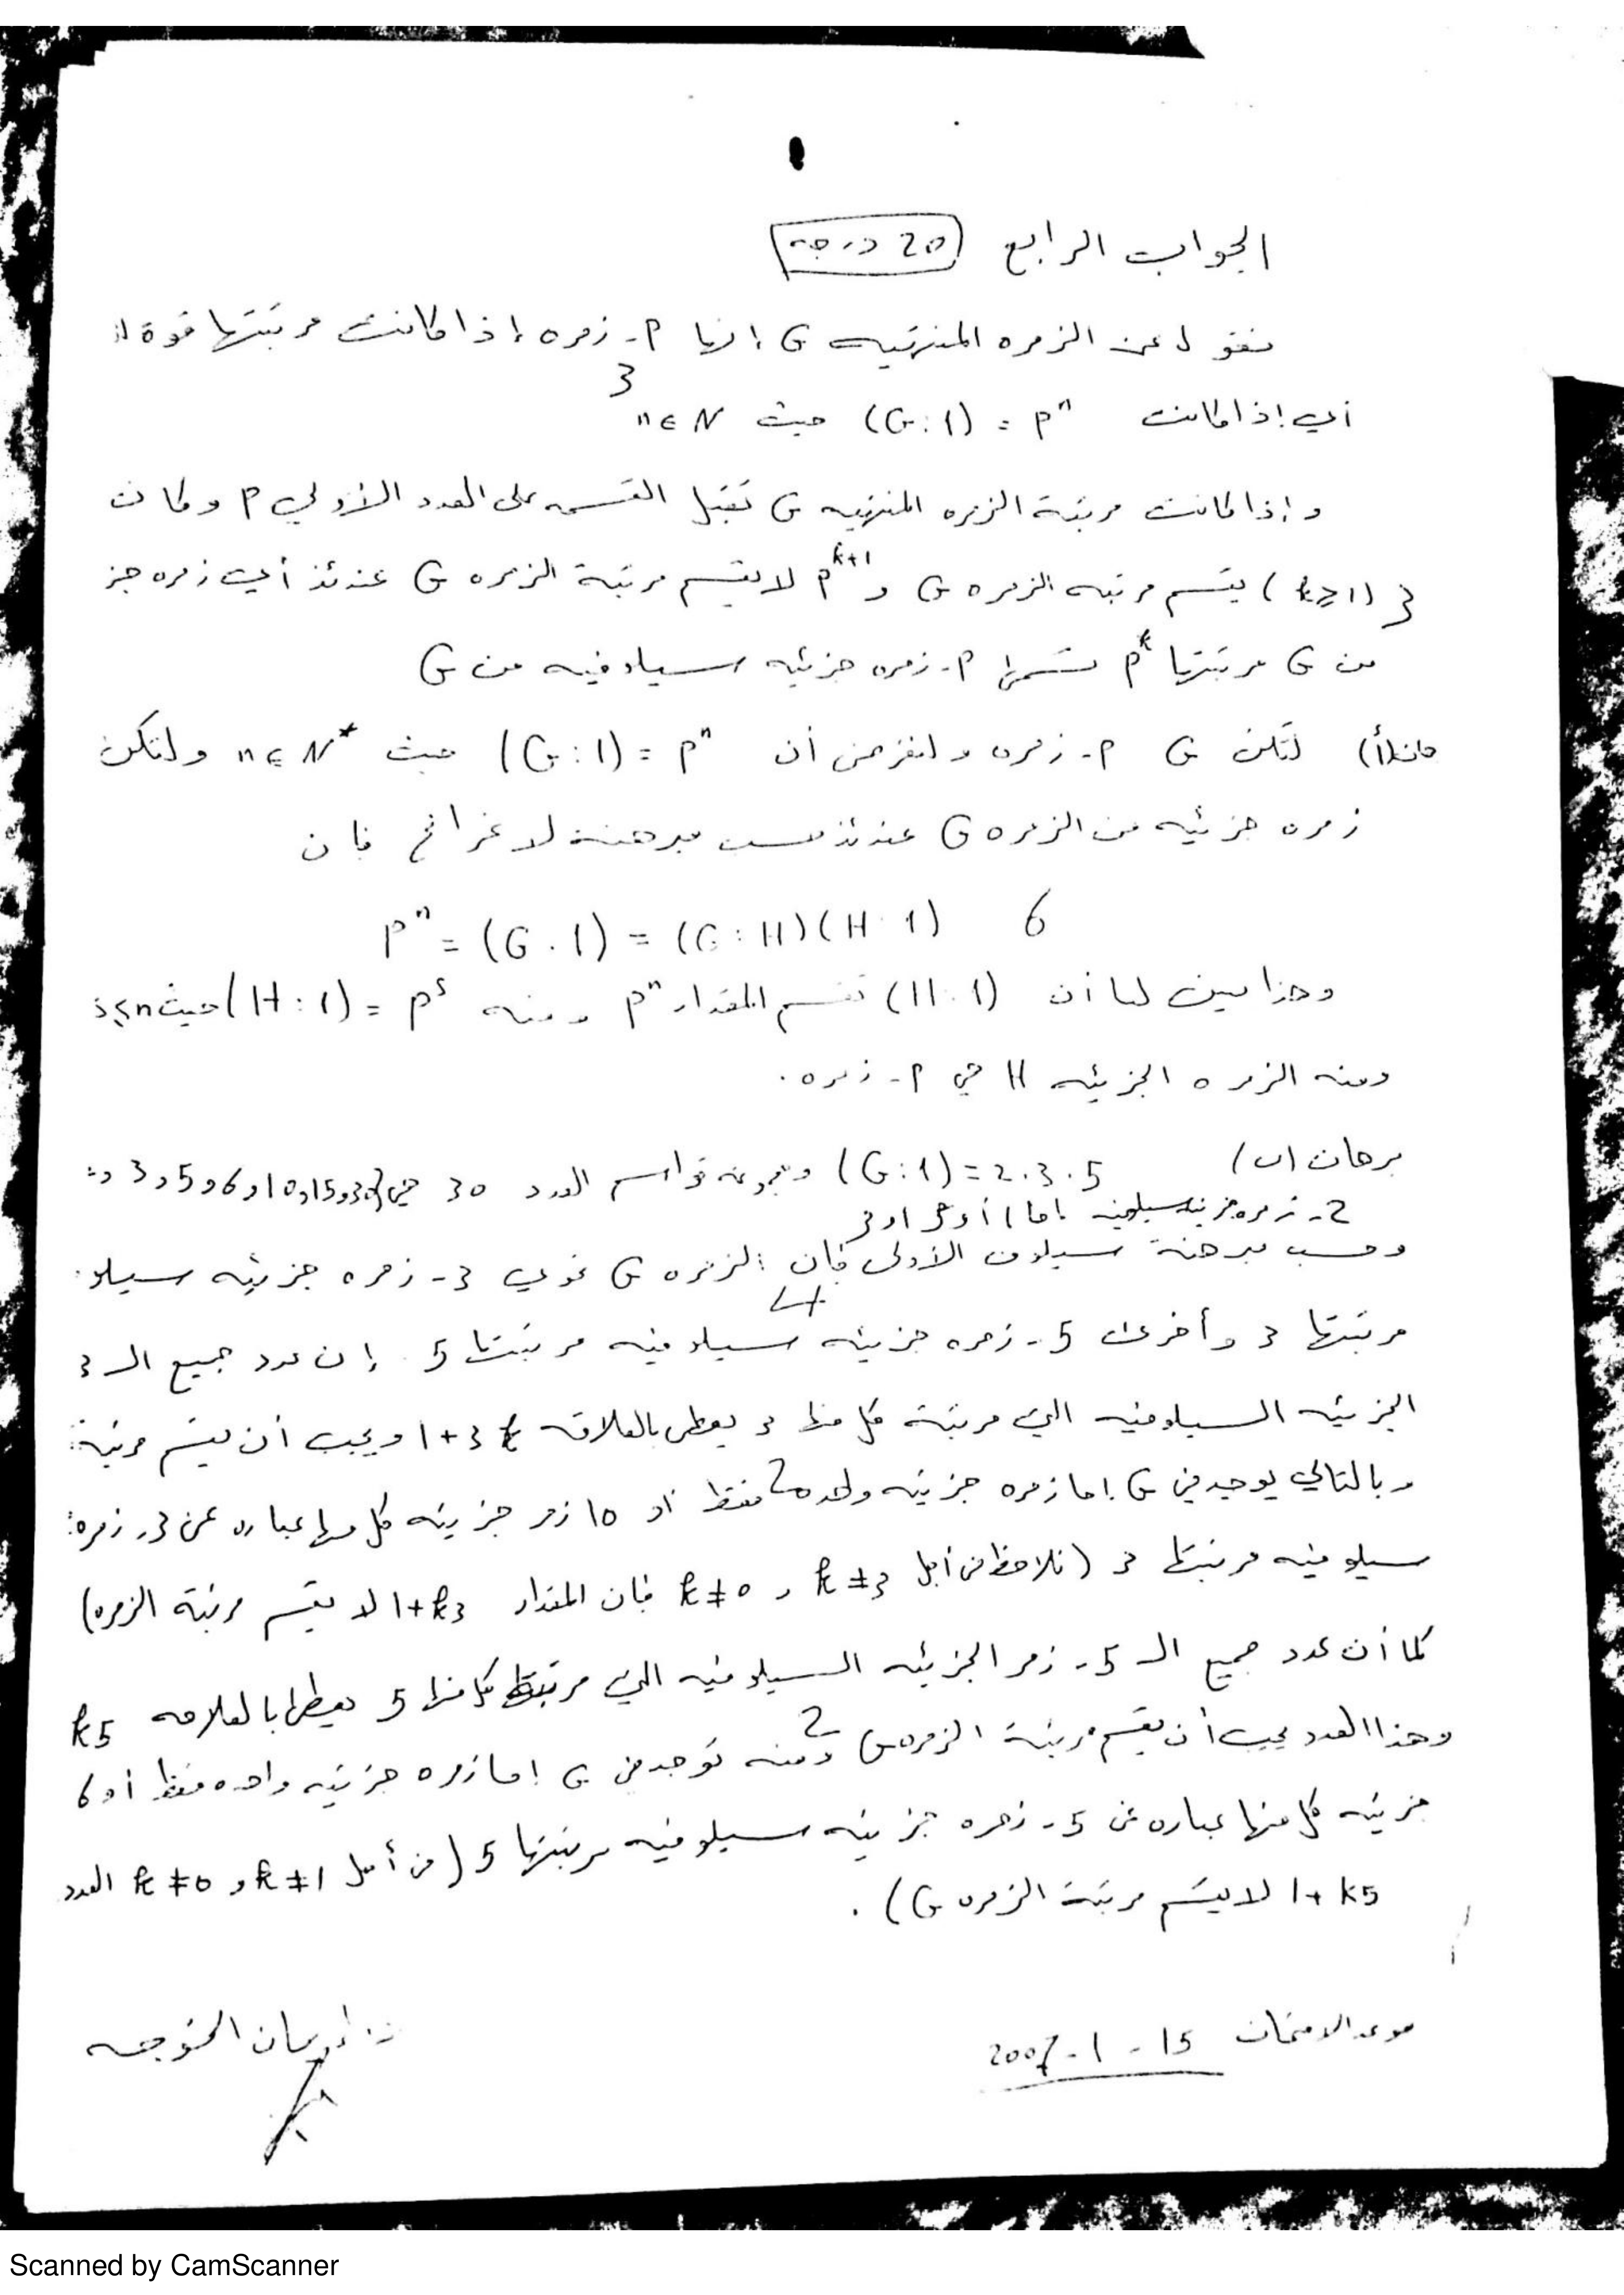 الجواب الرابع 20 درجه
نقول عن الزمره المنتهيه G إنها P - زمره إذا كانت مرتبتها قوة لـ
3
أي إذا كانت (G:1) = P^n حيث n ∈ N
و إذا كانت مرتبة الزمره المنتهيه G تقبل القسمه على العدد الأولي P وكان
3 (k≥1) يقسم مرتبه الزمره G و P^{k+1} لا يقسم مرتبة الزمره G عندئذ أي زمره جز
من G مرتبتها P^k تسمى P - زمره جزئيه سيلوفيه من G
لتكن G P - زمره ولنفرض أن (G:1) = P^n حيث n ∈ N* ولتكن
زمره جزئيه من الزمره G عندئذ حسب مبرهنة لاغرانج فإن
P^n = (G:1) = (G:H)(H:1) 6
وهذا يبين لنا أن (H:1) تقسم المقدار P^n ومنه (H:1) = P^s حيث s≤n
ومنه الزمره الجزئيه H هي P - زمره .
برهان (ب) (G:1) = 2.3.5 ومجموعه قواسم العدد 30 هي 3,5,6,10,15,30
2 - زمره جزئيه سيلوفيه
وحسب مبرهنة سيلوف الأولى فإن الزمره G تحوي 3 - زمره جزئيه سيلو
4
مرتبتها 3 وأخرى 5 - زمره جزئيه سيلوفيه مرتبتها 5 . إن عدد جميع الـ 3
الجزئيه السيلوفيه التي مرتبة كل منها 3 يعطى بالعلاقه 1+3k ويجب أن يقسم مرتبة
وبالتالي يوجد في G إما زمره جزئيه واحده 2 فقط أو 10 زمر جزئيه كل منها عباره عن 3 - زمره
سيلوفيه مرتبتها 3 (نلاحظ من أجل k≠3 و k≠0 فإن المقدار 1+k3 لا يقسم مرتبة الزمره)
كما أن عدد جميع الـ 5 - زمر الجزئيه السيلوفيه التي مرتبة كل منها 5 يعطى بالعلاقه k5
وهذا العدد يجب أن يقسم مرتبة الزمره G 2 ومنه توجد في G إما زمره جزئيه واحده فقط أو 6
جزئيه كل منها عباره عن 5 - زمره جزئيه سيلوفيه مرتبتها 5 (من أجل k≠1 و k≠0 العدد
1+k5 لا يقسم مرتبة الزمره G) .
موعد الامتحان 15 - 1 - 2007
د. إيمان الخوجه
Scanned by CamScanner